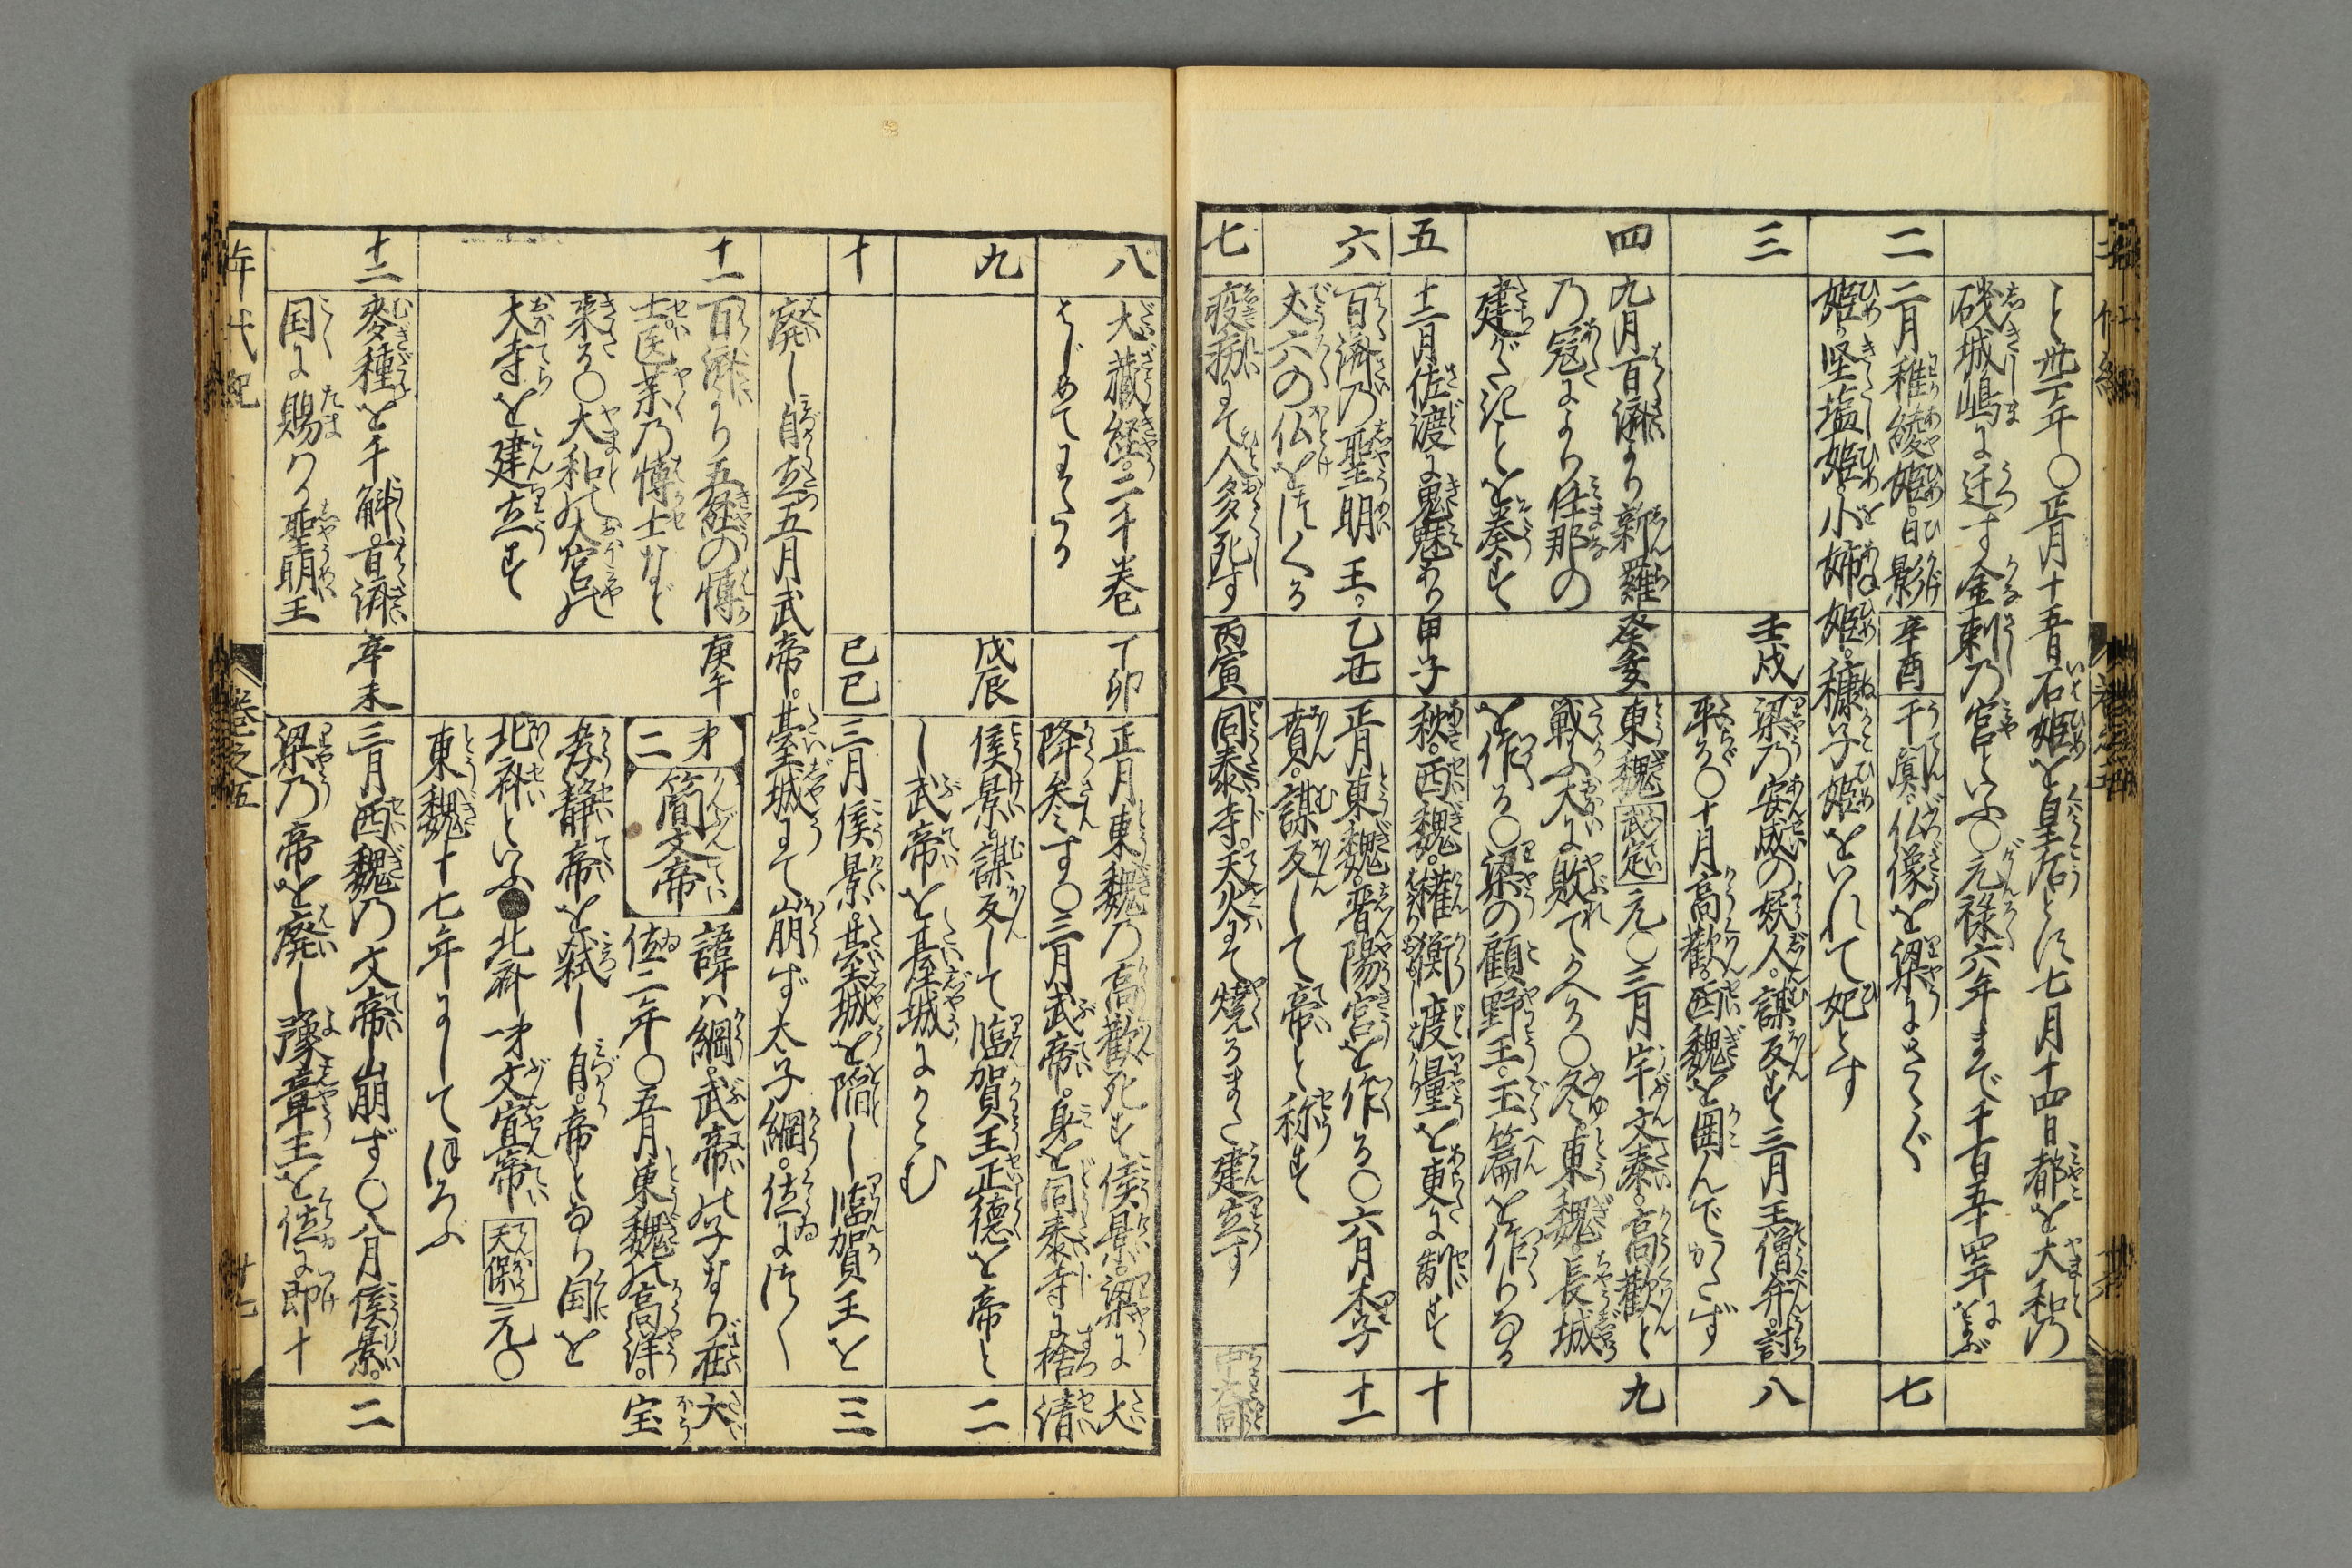 と丗二年〇正月十五日石姫を皇后とす七月十四日都を大和乃
磯城嶋に迁す金刺乃宮といふ〇元禄六年まで千百五十四年におよぶ
二
二月稚綾姫。日影
辛酉
干闐。仏像を梁にさゝぐ
七
姫。堅塩姫。小姉姫。糠子姫をいれて妃とす
三
壬戌
梁乃安成の妖人。謀反す三月王僧弁。討
八
平る〇十月高歡。西魏を囲んでかたず
四
九月百濟より新羅
癸亥
東魏武定元〇三月宇文泰。高歡と
九
乃寇により任那の
戰ふ大に敗れてかへる〇冬。東魏。長城
建がたきことを奏す
を作る〇梁の顧野王。玉篇を作りなる
五
十二月佐渡に鬼魅あり
甲子
秋。西魏。權衡度量を更に制す
十
六
百濟乃聖明王。
乙丑
正月東魏。晋陽宮を作る〇六月李
十一
丈六の仏をつくる
賁。謀反して帝と称す
七
疫病にて人多死す
丙寅
同泰寺。天火にて燒るまた建立す
中大同
八
大藏経。二千巻
丁卯
正月東魏乃高歡死す侯景。梁に
大
はじめてわたる
降参す〇三月武帝。身を同泰寺に捨
清
九
戊辰
侯景。謀反して臨賀王正德を帝と
二
し武帝を臺城にかこむ
十
己巳
三月侯景。臺城を陥し臨賀王を
三
廃し自立五月武帝。臺城にて崩ず太子綱。位につく
十一
百濟より五経の博
庚午
才二 簡文帝 諱ハ綱。武帝の子なり在
大
士医薬乃博士など
位二年〇五月東魏の高洋。
宝
来る〇大和の大宮の
孝静帝を弑し自。帝となり国を
大寺を建立す
北斉といふ●北斉才一文宣帝天保元〇
東魏十七年にしてほろぶ
十二
麥種を千斛。百濟
辛未
三月西魏乃文帝崩ず〇八月侯景。
二
国に賜ハる聖明王
梁乃帝を廃し豫章王を位に即十
年代紀
巻之五